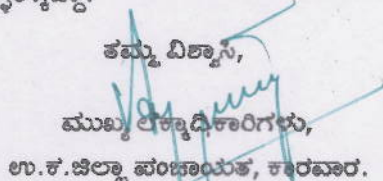 ತಮ್ಮ ವಿಶ್ವಾಸಿ,
ಮುಖ್ಯ ಲೆಕ್ಕಾಧಿಕಾರಿಗಳು,
ಉ.ಕ.ಜಿಲ್ಲಾ ಪಂಚಾಯತ, ಕಾರವಾರ.